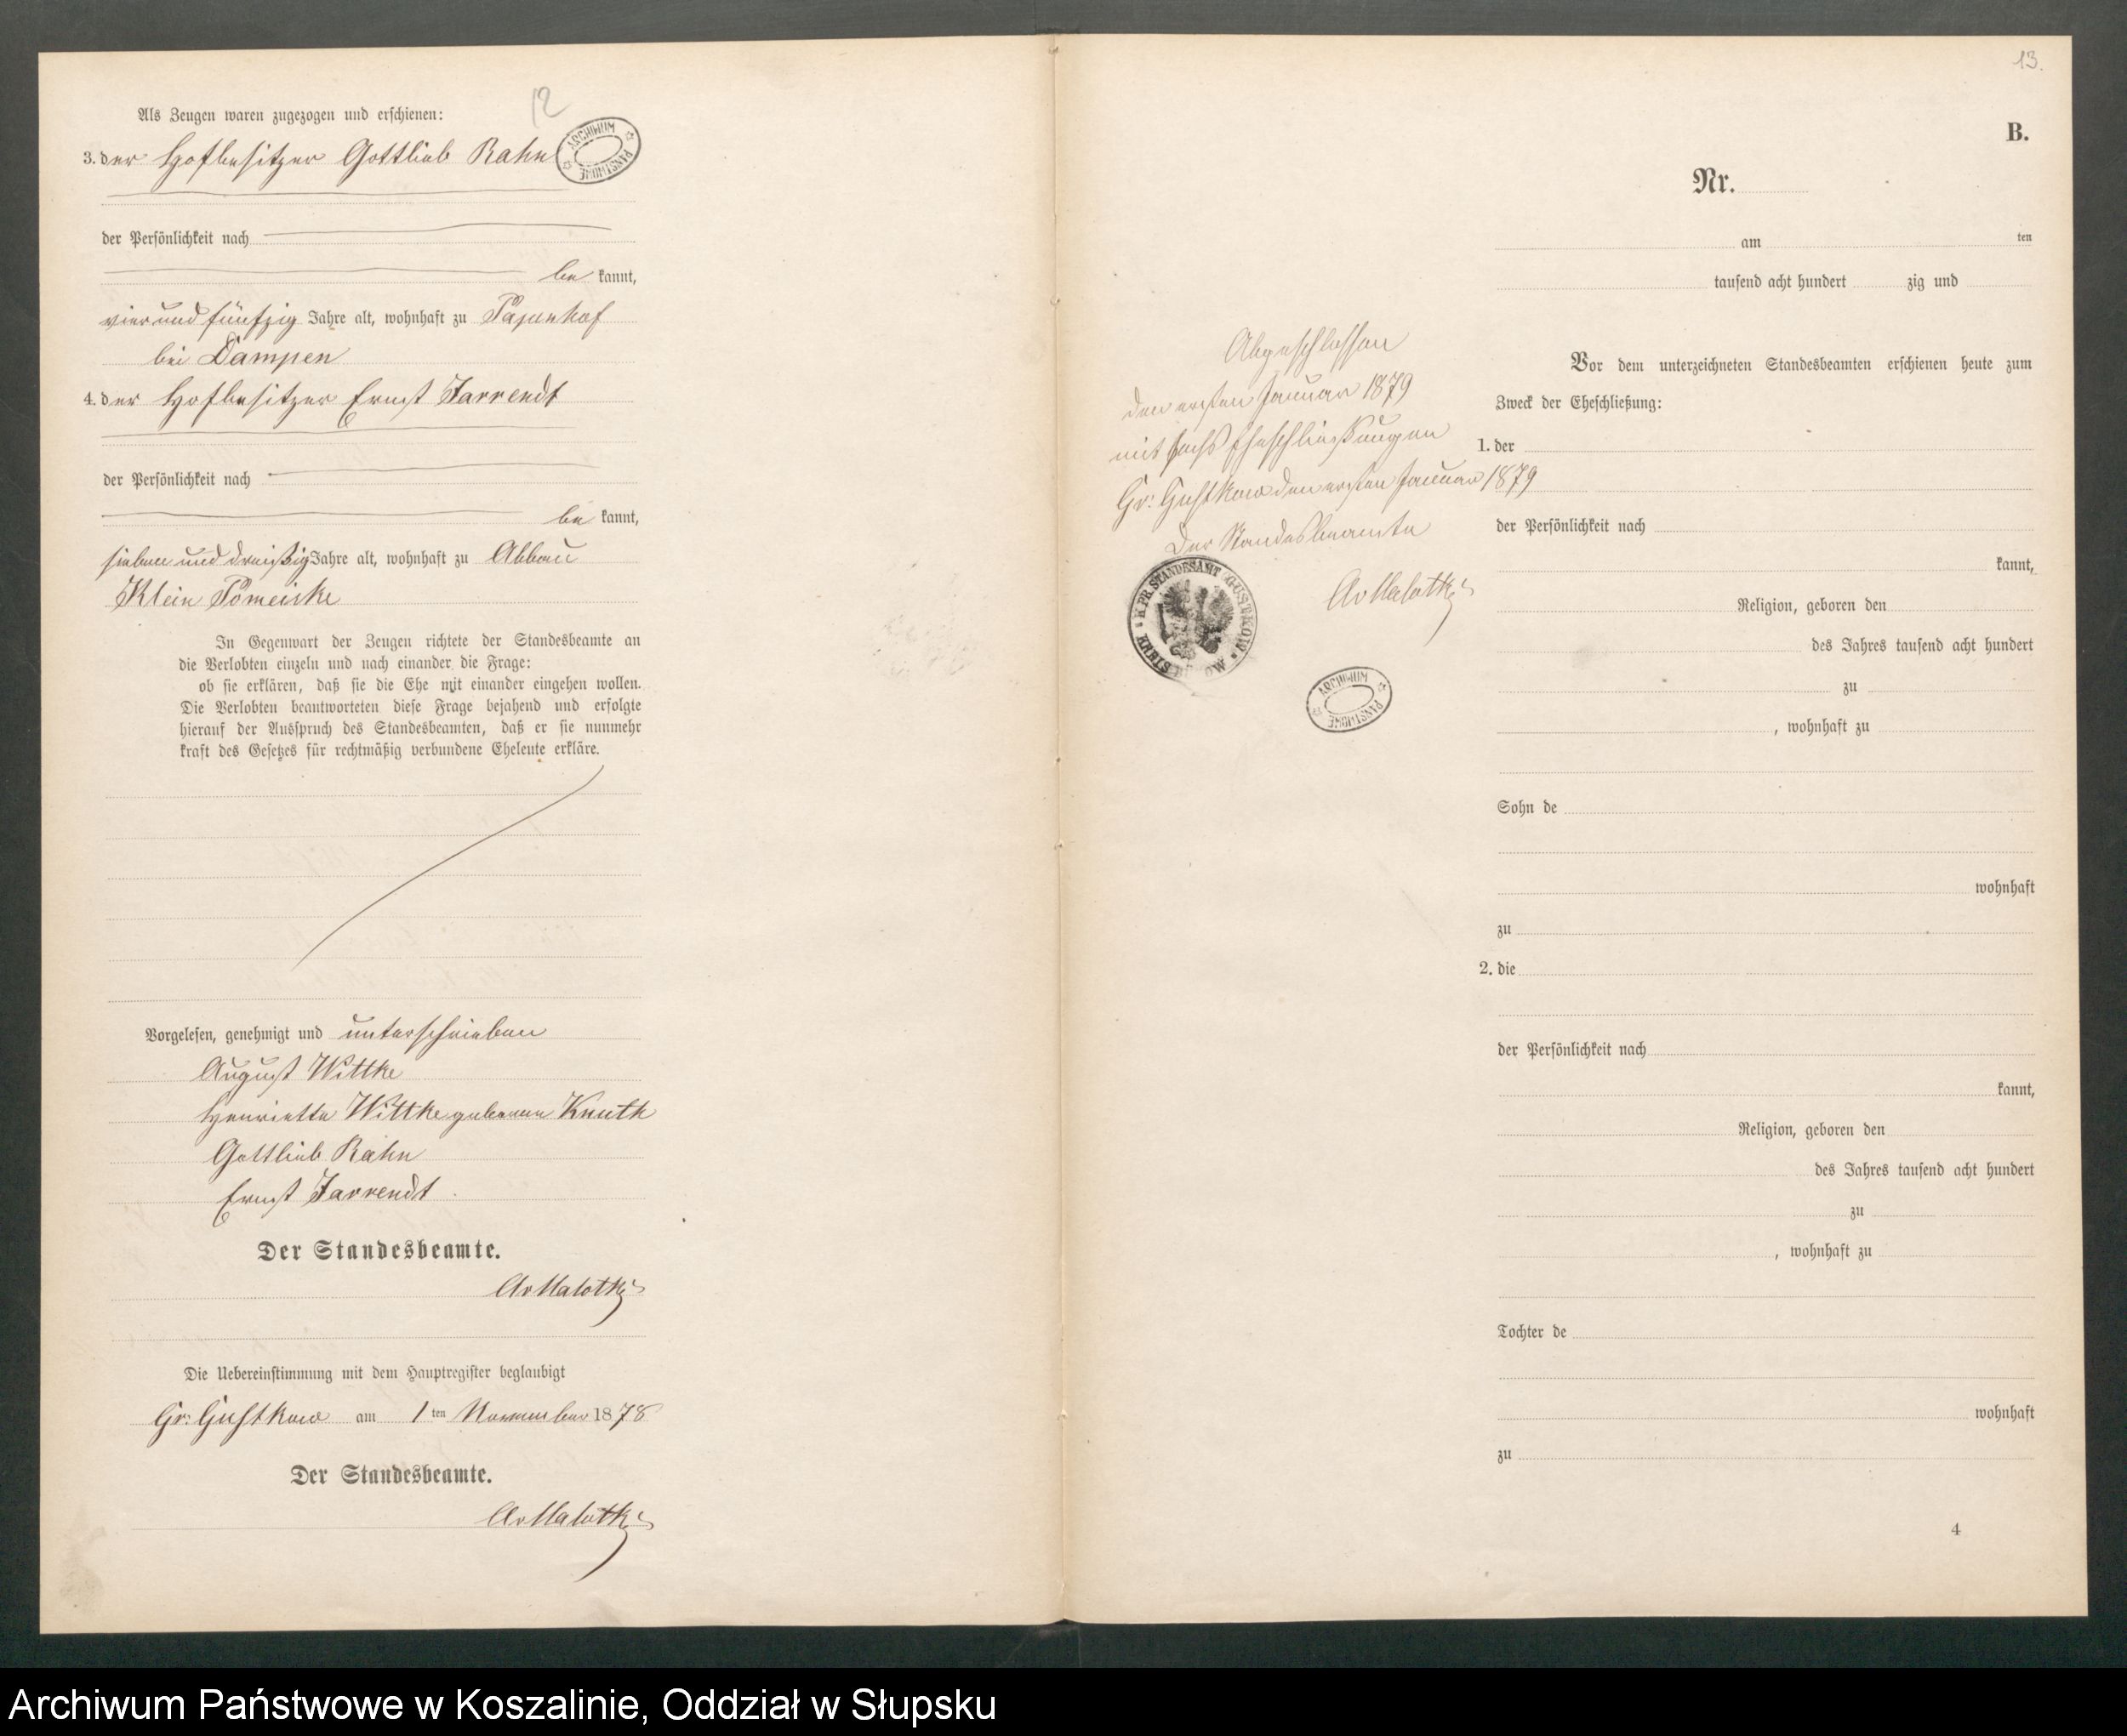 12
Als Zeugen waren zugezogen und erschienen:
3. der Hofbesitzer Gottlieb Rahn
ARCHIWUM PAŃSTWOWE
der Persönlichkeit nach
be kannt,
vier und fünfzig Jahre alt, wohnhaft zu Papenhof
bei Dampen
4. der Hofbesitzer Ernst Jarrendt
der Persönlichkeit nach
be kannt,
sieben und dreißig Jahre alt, wohnhaft zu Abbau
Klein Pomeiske
In Gegenwart der Zeugen richtete der Standesbeamte an
die Verlobten einzeln und nach einander die Frage:
ob sie erklären, daß sie die Ehe mit einander eingehen wollen.
Die Verlobten beantworteten diese Frage bejahend und erfolgte
hierauf der Ausspruch des Standesbeamten, daß er sie nunmehr
kraft des Gesetzes für rechtmäßig verbundene Eheleute erkläre.
Vorgelesen, genehmigt und unterschrieben
August Wittke
Henriette Wittke geborene Knuth
Gottlieb Rahn
Ernst Jarrendt
Der Standesbeamte.
AvMalotki
Die Uebereinstimmung mit dem Hauptregister beglaubigt
Gr: Gustkow am 1 ten November 1878
Der Standesbeamte.
AvMalotki
13.
B.
Nr.
am ten
tausend acht hundert zig und
Abgeschlossen
den ersten Januar 1879
mit sechs Eheschließungen
Gr: Gustkow den ersten Januar 1879
Der Standesbeamte
AvMalotki
K. PR. STANDESAMT GUSTKOW
ARCHIWUM PAŃSTWOWE
Vor dem unterzeichneten Standesbeamten erschienen heute zum
Zweck der Eheschließung:
1. der
der Persönlichkeit nach
kannt,
Religion, geboren den
des Jahres tausend acht hundert
zu
, wohnhaft zu
Sohn de
wohnhaft
zu
2. die
der Persönlichkeit nach
kannt,
Religion, geboren den
des Jahres tausend acht hundert
zu
, wohnhaft zu
Tochter de
wohnhaft
zu
4
Archiwum Państwowe w Koszalinie, Oddział w Słupsku